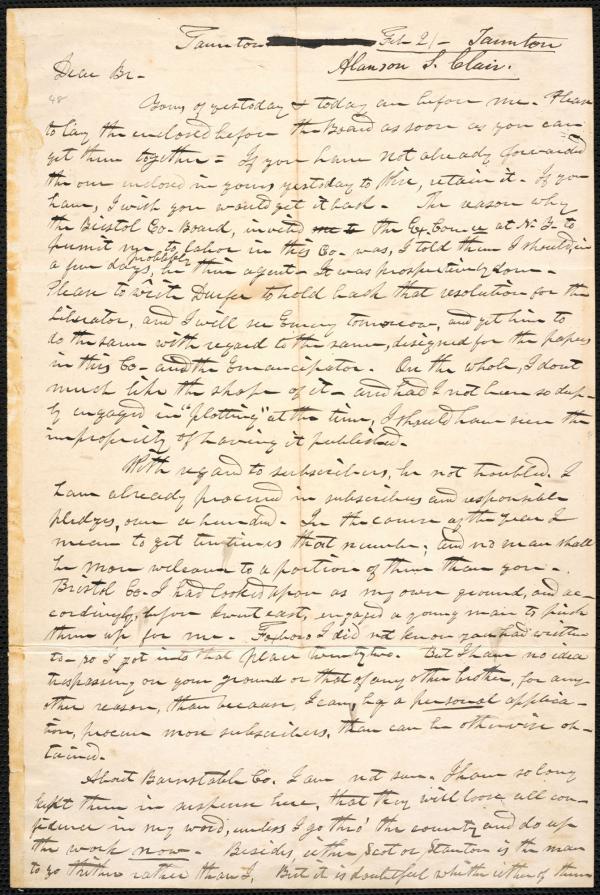 Taunton Feb. 21- Taunton
Alanson S. Clair.
Dear Br-
48
Yours of yesterday & today are before me. Please
to lay the enclosed before the Board as soon as you can
get them together - If you have not already forwarded
the one inclosed in yours yesterday to Phil, retain it. If you
have, I wish you would get it back. The reason why
the Bristol Co. Board, invited me to the Ex. Com. at N.Y. to
permit me to labor in this Co. was, I told them I should, in
a few days, probably be their agent - It was prospectively done -
Please to write to hold back that resolution for the
Liberator, and I will see Emery tomorrow, and get him to
do the same with regard to the same, designed for the papers
in this Co - and the Emancipator. On the whole, I dont
much like the shape of it - and had I not been so deep-
ly engaged in "plotting" at the time, I should have seen the
impropriety of having it published.
With regard to subscribers, be not troubled. I
have already procured in subscribers and responsible
pledges, over a hundred. In the course of the year I
mean to get ten times that number, and no man shall
be more welcome to a portion of them than you -
Bristol Co. I had looked upon as my own ground, and ac-
cordingly, before I went east, engaged a young man to pick
them up for me - Foxboro I did not know you had written
to - so I got into that place twenty two. But I have no idea
trespassing on your ground or that of any other brother, for any
other reason, than because, I can, by a personal applica-
tion, procure more subscribers, than can be otherwise ob-
tained.
About Barnstable Co. I am not sure. I have so long
kept them in suspense here, that they will loose all con-
fidence in my word, unless I go thro' the county and do up
the work now. Besides, either Scot or Stanton is the man
to go thither rather than I. But it is doubtful whether either of them